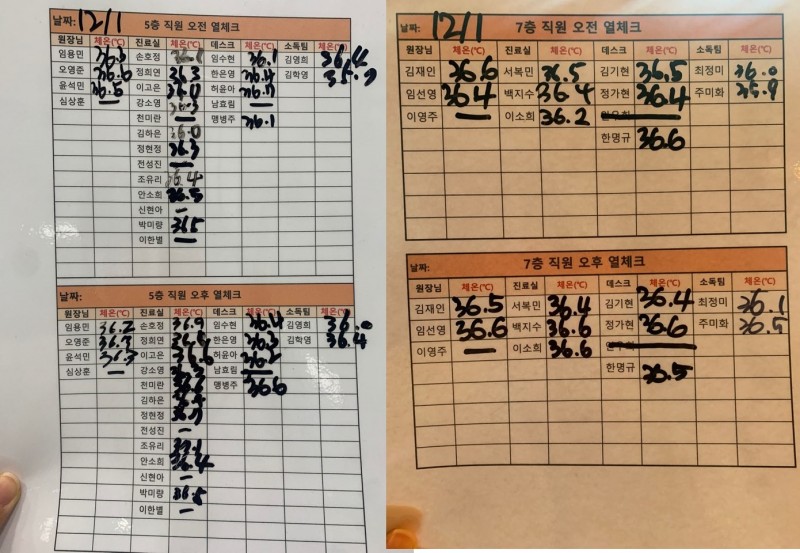 날짜: 12/1 5층 직원 오전 열체크
원장님 체온(℃) 진료실 체온(℃) 데스크 체온(℃) 소독팀 체온(℃)
임용민 36.3 손호정 임수현 36.1 김영희 36.4
오영준 36.6 정희연 36.3 한은영 36.4 김학영 35.9
윤석민 36.5 이고은 허윤아
심상훈 — 강소영 36.3 남효림 —
천미란 — 맹병주 36.1
김하은 36.0
정현정 36.3
전성진 —
조유리 36.4
안소희 36.5
신현아 —
박미량 36.5
이한별 —
날짜: 5층 직원 오후 열체크
원장님 체온(℃) 진료실 체온(℃) 데스크 체온(℃) 소독팀 체온(℃)
임용민 36.2 손호정 36.9 임수현 36.4 김영희 36.0
오영준 정희연 한은영 36.3 김학영 36.4
윤석민 36.3 이고은 36.6 허윤아 36.2
심상훈 — 강소영 남효림 —
천미란 맹병주 36.6
김하은
정현정
전성진 —
조유리
안소희 36.4
신현아 —
박미량 36.5
이한별 —
날짜: 12/1 7층 직원 오전 열체크
원장님 체온(℃) 진료실 체온(℃) 데스크 체온(℃) 소독팀 체온(℃)
김재인 36.6 서복민 36.5 김기현 36.5 최정미 36.0
임선영 36.4 백지수 36.4 정가현 36.4 주미화 35.9
이영주 — 이소희 36.2
한명규 36.6
날짜: 7층 직원 오후 열체크
원장님 체온(℃) 진료실 체온(℃) 데스크 체온(℃) 소독팀 체온(℃)
김재인 36.5 서복민 36.4 김기현 36.4 최정미 36.1
임선영 36.6 백지수 36.6 정가현 36.6 주미화 36.5
이영주 — 이소희 36.6
한명규 36.5